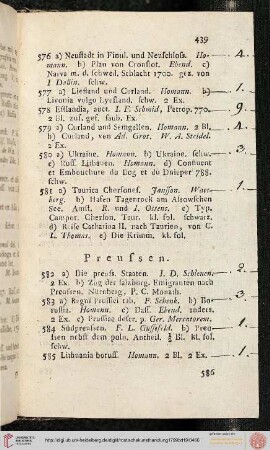 439
576 a) Neustadt in Finnl. und Neuschloss. Ho-
mann. b) Plan von Cronslot. Ebend. c)
Narva m. d. schwed. Schlacht 1700. gez. von
I Dahlin. schw.
577 a) Liefland und Curland. Homann. b)
Livonia vulgo Lyefland. schw. 2 Ex.
578 Esthandia, auct. I. F. Schmid, Petrop. 770.
2 Bl. zus. gef. saub. Ex.
579 a) Curland und Semgellen. Homann. 2 Bl.
b) Curland, von Ad. Grot. W. A. Steidel.
2 Ex.
580 a) Ukraine. Homann. b) Ukraine. schw.
c) Russ. Litthauen. Homann. d) Confluent
et Embouchure du Bog et du Dnieper 788.
schw.
581 a) Taurica Chersones. Jansson. Waes-
berg. b) Hafen Tagenrock am Asowschen
See. Amst. R. und I. Ottens. c) Typ.
Campor. Cherson, Taur. kl. fol. schwarz.
d) Reise Catharina II. nach Taurien, von C.
L. Thomas. e) Die Krimm, kl. fol.
Preussen.
582 a) Die preuss. Staaten. I. D. Schleuen.
2 Ex. b) Zug der salzburg. Emigranten nach
Preussen. Nürnberg, P. C. Monath.
583 a) Regni Prussici tab. P. Schenk. b) Bo-
russia. Homann. c) Dass. Ebend. anders.
2 Ex. c) Prussiae descr. p. Ger. Mercatorem.
584 Südpreussen. F. L. Güssefeld. b) Preus-
sen nebst dem poln. Antheil. ½ Bl. kl. fol.
schw.
585 Lithuania boruss. Homann. 2 Bl. 2 Ex.
586
4.
1.
9.
4.
3.
2.
3.
1.
1.